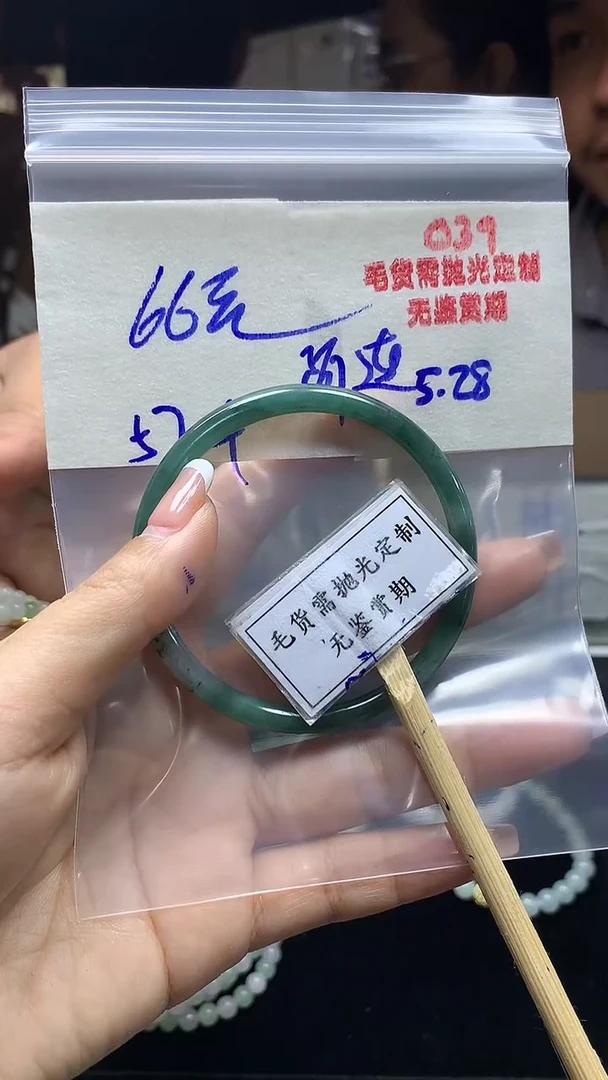 039
毛货需抛光定制
无鉴赏期
66云
5.28
57
毛货需抛光定制
无鉴赏期